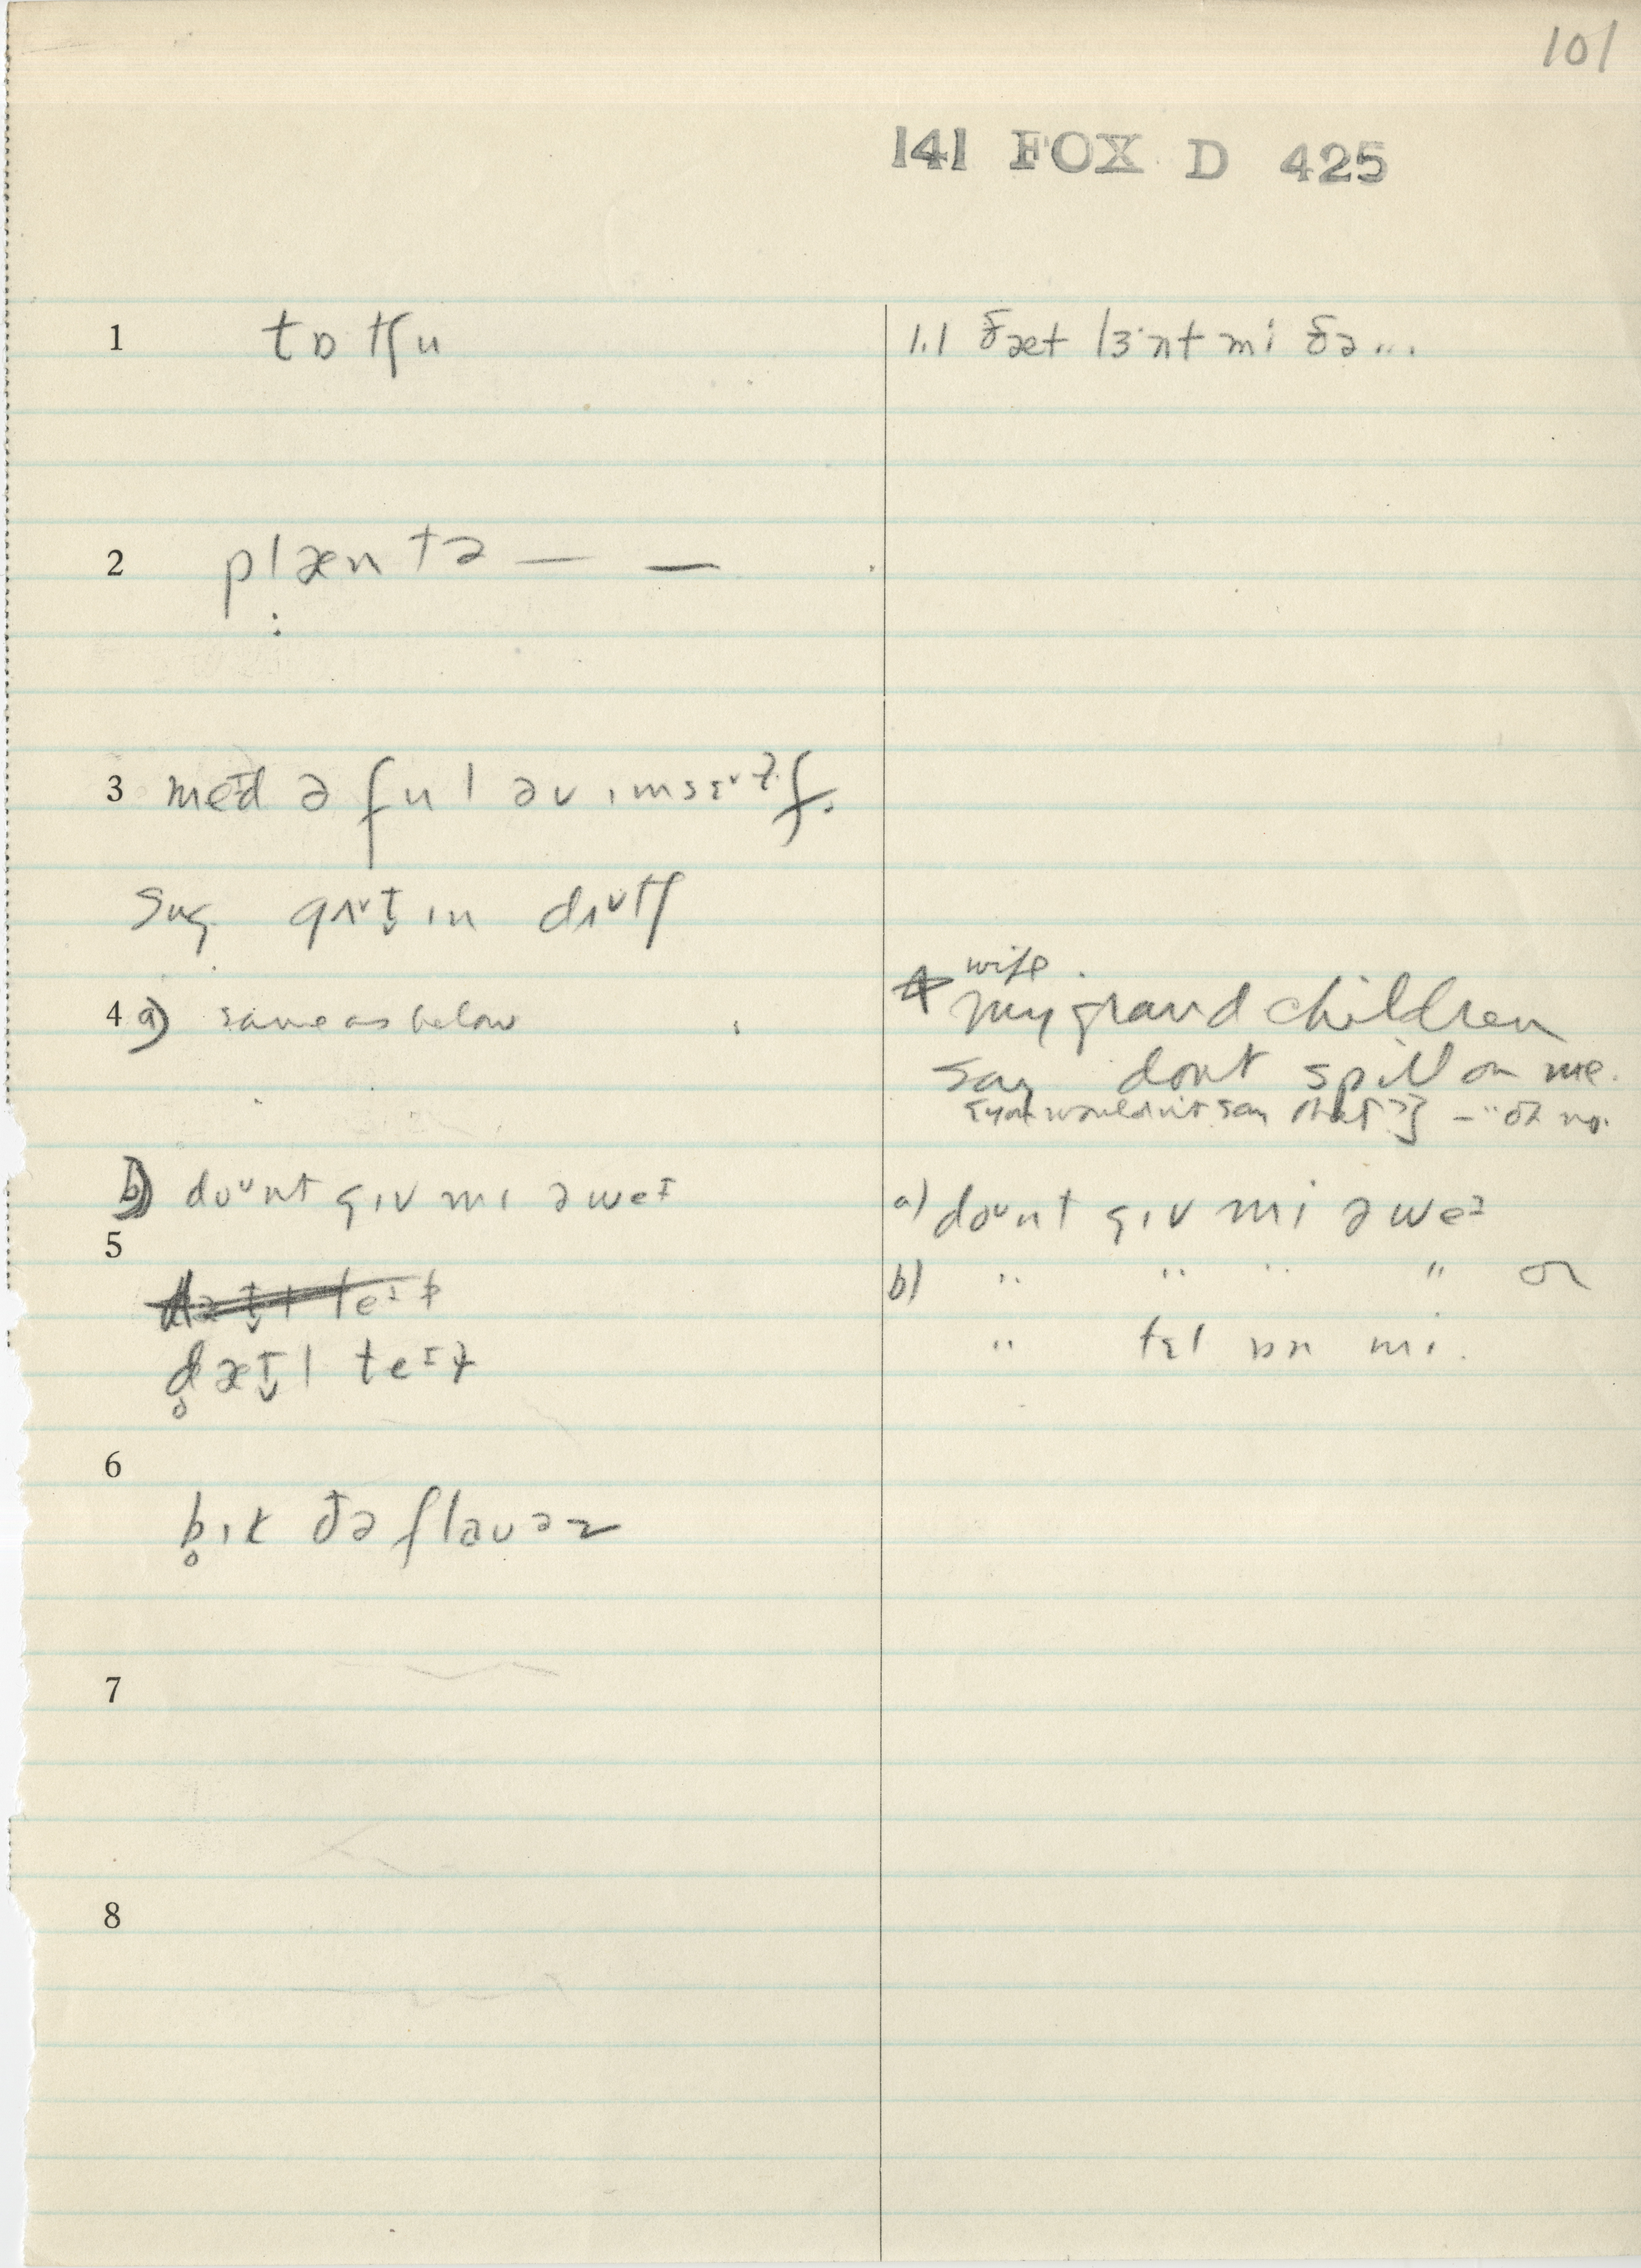 101
141 FOX D 425
1 tɒ tʃu
1.1 ðæt lɜ·nt mi ðə...
2 plæntə — —
3 meɪd ə ful əv ɪmsɛʋɫf.
sug. gʌʋt̬ ɪn dʌʋtʃ
4 a) same as below
wife.
4 my grand children
say dont spill on me.
[you wouldn't say that?] – "oh no.
b) doʋnt gɪv mɪ əweɪ
a) doʋnt gɪv mi əweɪ
5
b) " " " " or
" tɛl ɒn mi.
d̥æt̬l teɪɫ
6
b̥ɪt ðə flaʋəz
7
8